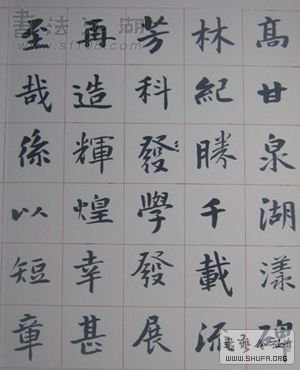 高甘泉湖漾碑
林紀勝千載流
芳科發學發展
再造輝煌幸甚
至哉係以短章
書法江湖
www.sf108.com
書藝公社
WWW.SHUFA.ORG